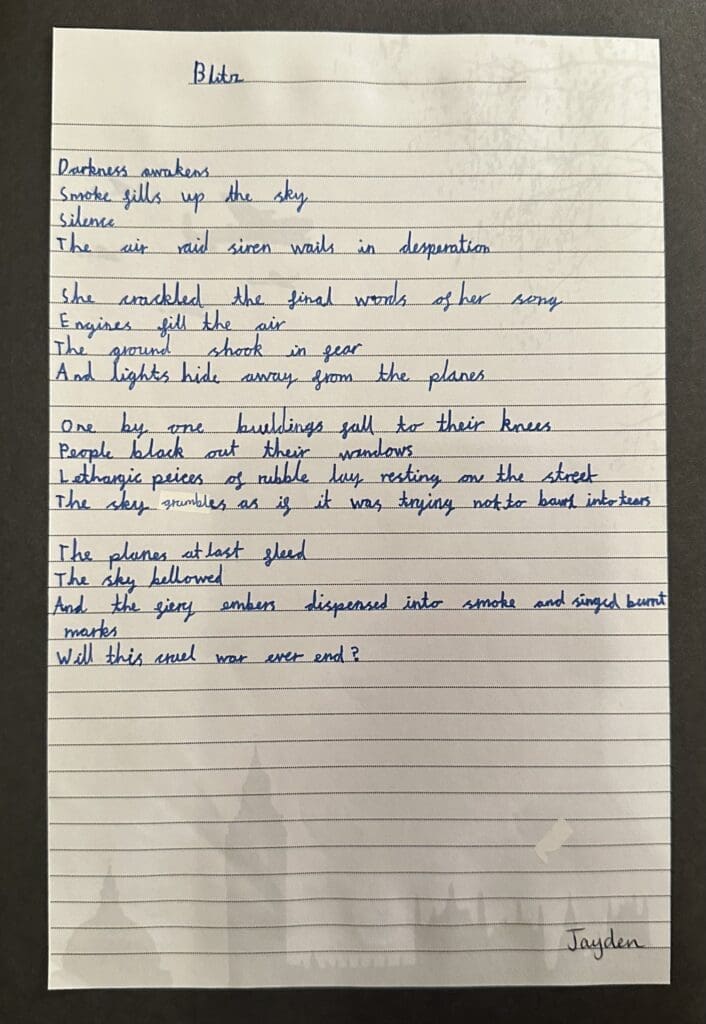 Blitz
Darkness awakens
Smoke fills up the sky
Silence
The air raid siren wails in desperation
She crackled the final words of her song
Engines fill the air
The ground shook in fear
And lights hide away from the planes
One by one buildings fall to their knees
People black out their windows
Lethargic peices of rubble lay resting on the street
The sky grumbles as if it was trying not to burst into tears
The planes at last fleed
The sky bellowed
And the fiery embers dispensed into smoke and singed burnt
marks
Will this cruel war ever end?
Jayden